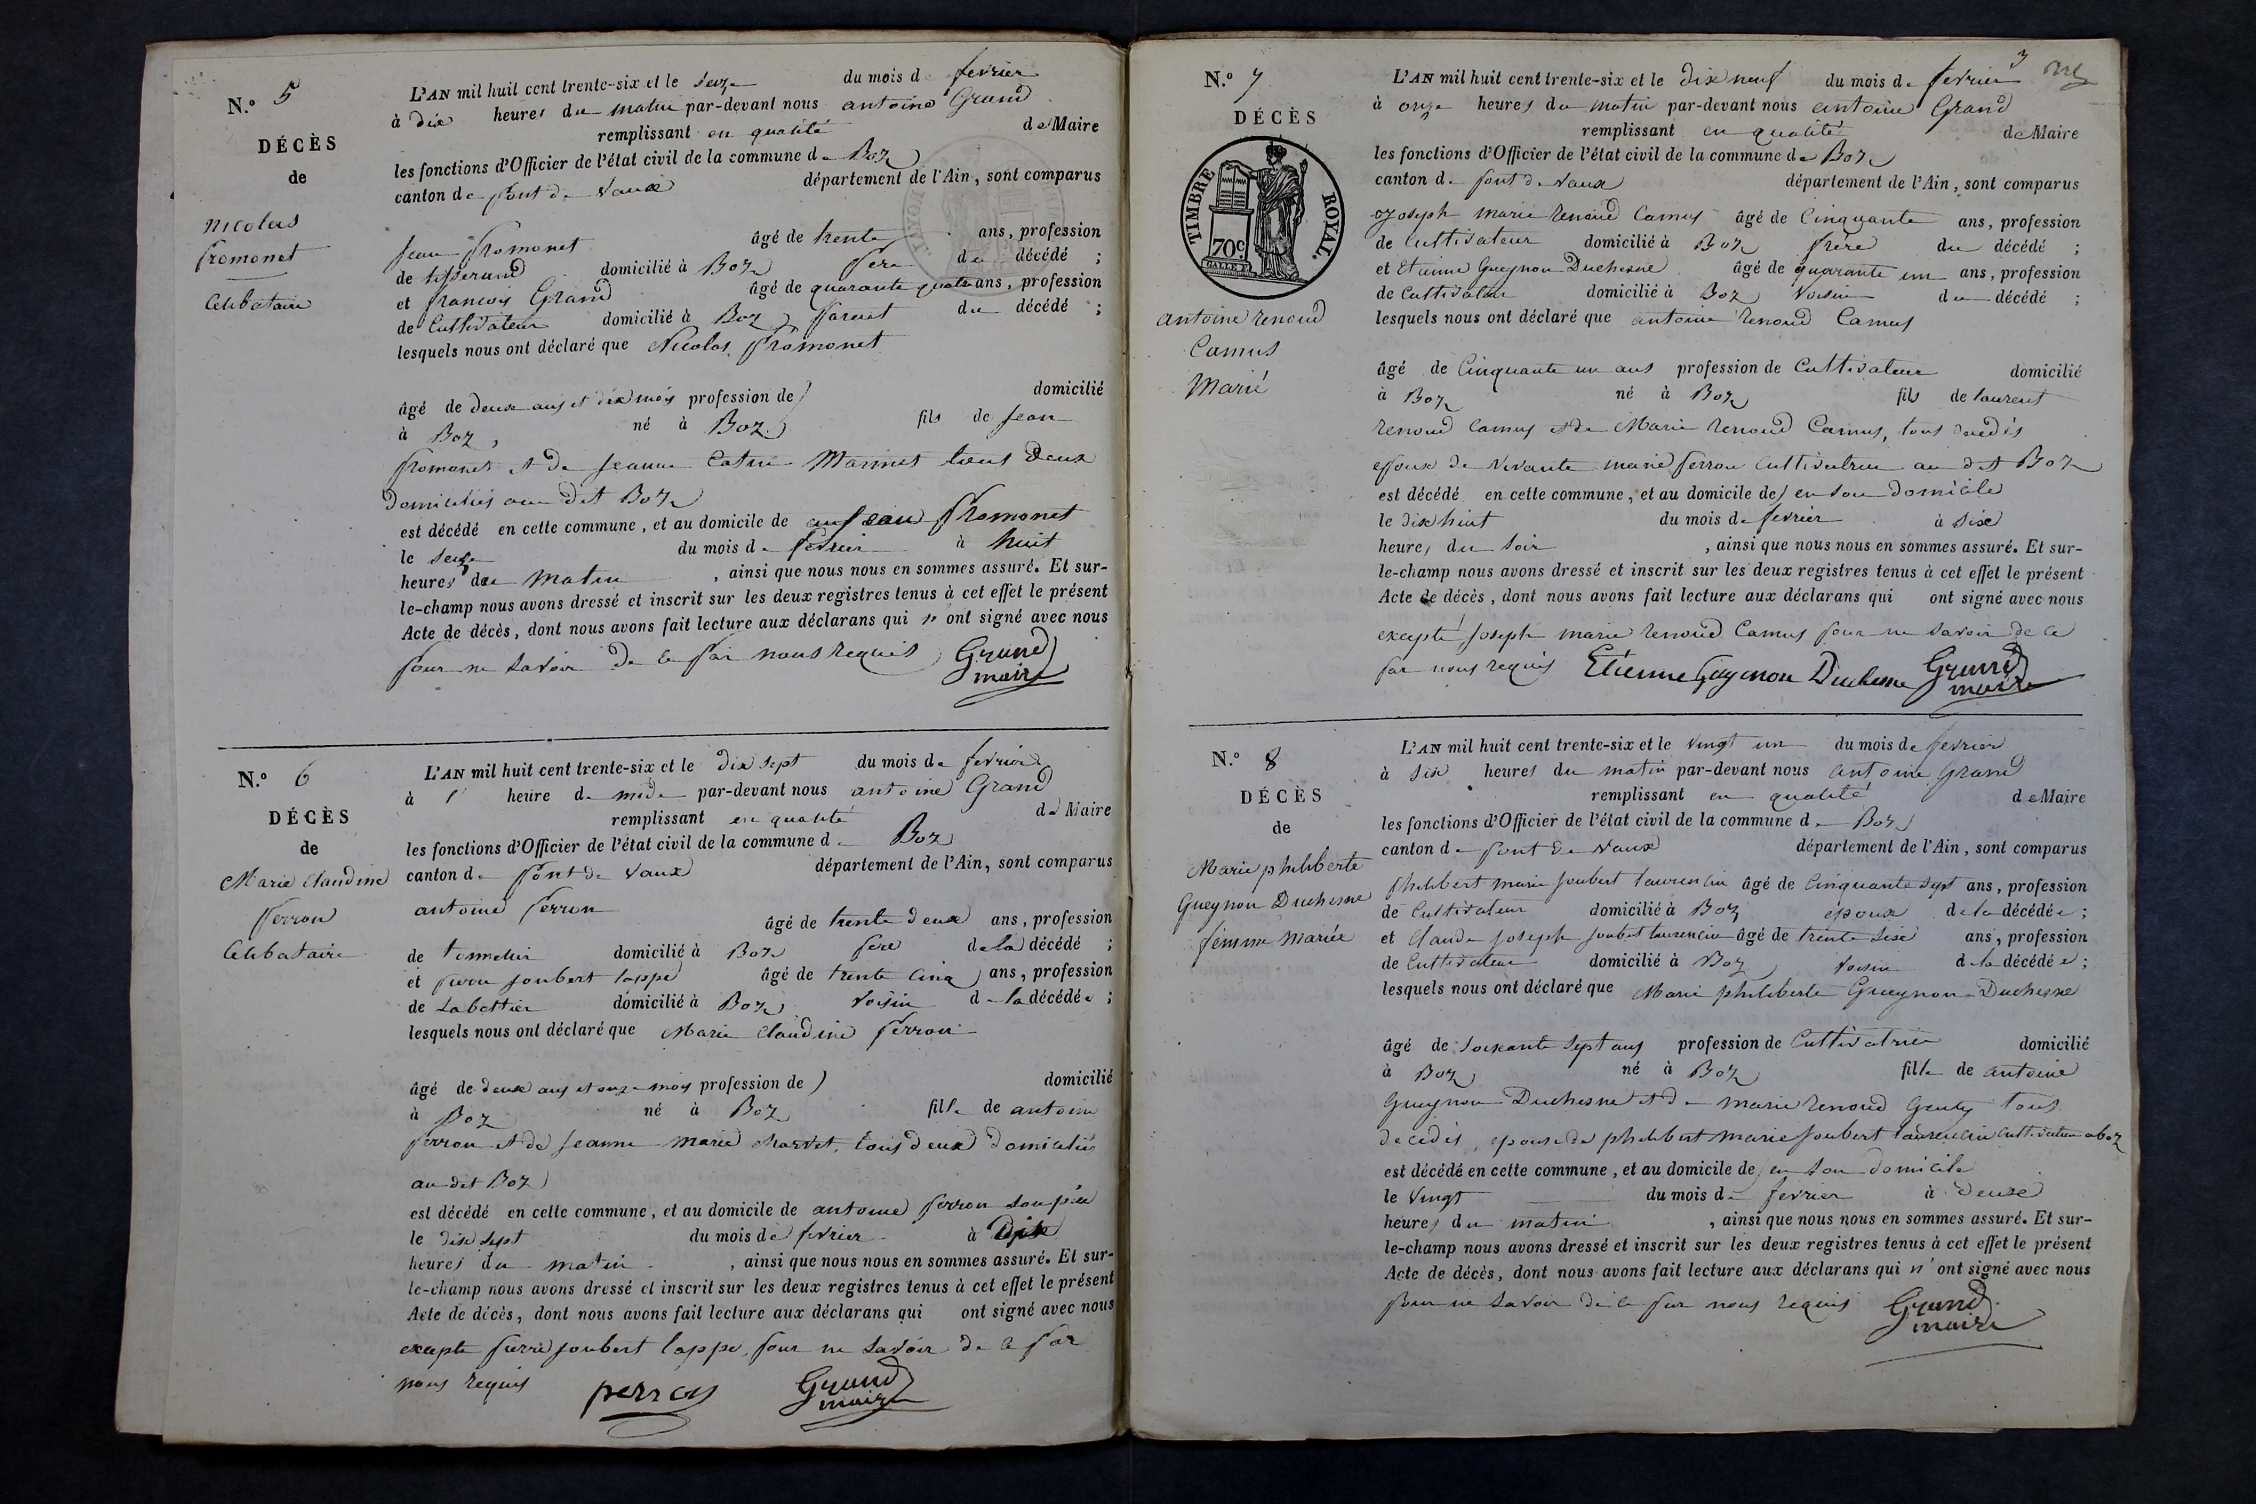 N.º 5
DÉCÈS
de
nicolas
fromonet
Celibataire
L'AN mil huit cent trente-six et le seize du mois de fevrier
à dix heures du matin par-devant nous antoine Grand
remplissant en qualité de Maire
les fonctions d'Officier de l'état civil de la commune de Boz
canton de pont de vaux département de l'Ain, sont comparus
jean fromonet âgé de trente ans, profession
de tisserand domicilié à Boz pere du décédé ;
et francois Grand âgé de quarante quatre ans, profession
de Cultivateur domicilié à Boz parent du décédé ;
lesquels nous ont déclaré que Nicolas fromonet
âgé de deux ans et dix mois profession de domicilié
à Boz, né à Boz fils de jean
fromonet et de jeanne Marinet tous deux
domiciliés au dit Boz
est décédé en cette commune, et au domicile de fromonet
le seize du mois de fevrier à huit
heures du matin , ainsi que nous nous en sommes assuré. Et sur-
le-champ nous avons dressé et inscrit sur les deux registres tenus à cet effet le présent
Acte de décès, dont nous avons fait lecture aux déclarans qui n'ont signé avec nous
pour ne savoir de ce par nous requis Grand
maire
N.º 6
DÉCÈS
de
Marie Claudine
perron
Celibataire
L'AN mil huit cent trente-six et le dix sept du mois de fevrier
à 1 heure de midi par-devant nous antoine Grand
remplissant en qualité de Maire
les fonctions d'Officier de l'état civil de la commune de Boz
canton de pont de vaux département de l'Ain, sont comparus
antoine perron âgé de trente deux ans, profession
de tonnelier domicilié à Boz pere de la décédé ;
et pierre joubert lappe âgé de trente cinq ans, profession
de sabottier domicilié à Boz voisin de la décédée ;
lesquels nous ont déclaré que Marie Claudine perron
âgé de deux ans et onze mois profession de domicilié
à Boz né à Boz fille de antoine
perron et de jeanne marie charvet, tous deux domiciliés
au dit Boz
est décédé en cette commune, et au domicile de antoine perron son père
le dix sept du mois de fevrier à dix
heures du matin , ainsi que nous nous en sommes assuré. Et sur-
le-champ nous avons dressé et inscrit sur les deux registres tenus à cet effet le présent
Acte de décès, dont nous avons fait lecture aux déclarans qui ont signé avec nous
excepté pierre joubert lappe, pour ne savoir de ce par
nous requis perron Grand
maire
3
N.º 7
DÉCÈS
TIMBRE ROYAL.
70c
antoine renoud
Camus
Marié
L'AN mil huit cent trente-six et le dix neuf du mois de fevrier
à onze heures du matin par-devant nous antoine Grand
remplissant en qualité de Maire
les fonctions d'Officier de l'état civil de la commune de Boz
canton de pont de vaux département de l'Ain, sont comparus
joseph marie renoud Camus âgé de Cinquante ans, profession
de Cultivateur domicilié à Boz frère du décédé ;
et Etienne Gueynon Duchesne âgé de quarante un ans, profession
de Cultivateur domicilié à Boz voisin du décédé ;
lesquels nous ont déclaré que antoine renoud Camus
âgé de Cinquante un ans profession de Cultivateur domicilié
à Boz né à Boz fils de laurent
renoud Camus et de Marie renoud Camus, tous decedés
epoux de vivante marie perron Cultivatrice au dit Boz
est décédé en cette commune, et au domicile de en son domicile
le dix huit du mois de fevrier à six
heures du soir , ainsi que nous nous en sommes assuré. Et sur-
le-champ nous avons dressé et inscrit sur les deux registres tenus à cet effet le présent
Acte de décès, dont nous avons fait lecture aux déclarans qui ont signé avec nous
excepté joseph marie renoud Camus pour ne savoir de ce
par nous requis Etienne Guynon Duchesne Grand
maire
N.º 8
DÉCÈS
de
Marie philiberte
Gueynon Duchesne
femme Mariée
L'AN mil huit cent trente-six et le vingt un du mois de fevrier
à six heures du matin par-devant nous antoine Grand
remplissant en qualité de Maire
les fonctions d'Officier de l'état civil de la commune de Boz
canton de pont de vaux département de l'Ain, sont comparus
philibert marie joubert laurencin âgé de Cinquante sept ans, profession
de Cultivateur domicilié à Boz epoux de la décédée ;
et claude joseph joubert laurencin âgé de trente six ans, profession
de Cultivateur domicilié à Boz voisin de la décédée ;
lesquels nous ont déclaré que Marie philiberte Gueynon Duchesne
âgé de soixante sept ans profession de Cultivatrice domicilié
à Boz né à Boz fille de antoine
Gueynon Duchesne et de marie renoud Genty tous
decedés, epouse de philibert marie joubert laurencin cultivateur a boz
est décédé en cette commune, et au domicile de en son domicile
le vingt du mois de fevrier à deux
heures du matin , ainsi que nous nous en sommes assuré. Et sur-
le-champ nous avons dressé et inscrit sur les deux registres tenus à cet effet le présent
Acte de décès, dont nous avons fait lecture aux déclarans qui n'ont signé avec nous
pour ne savoir de ce par nous requis Grand
maire